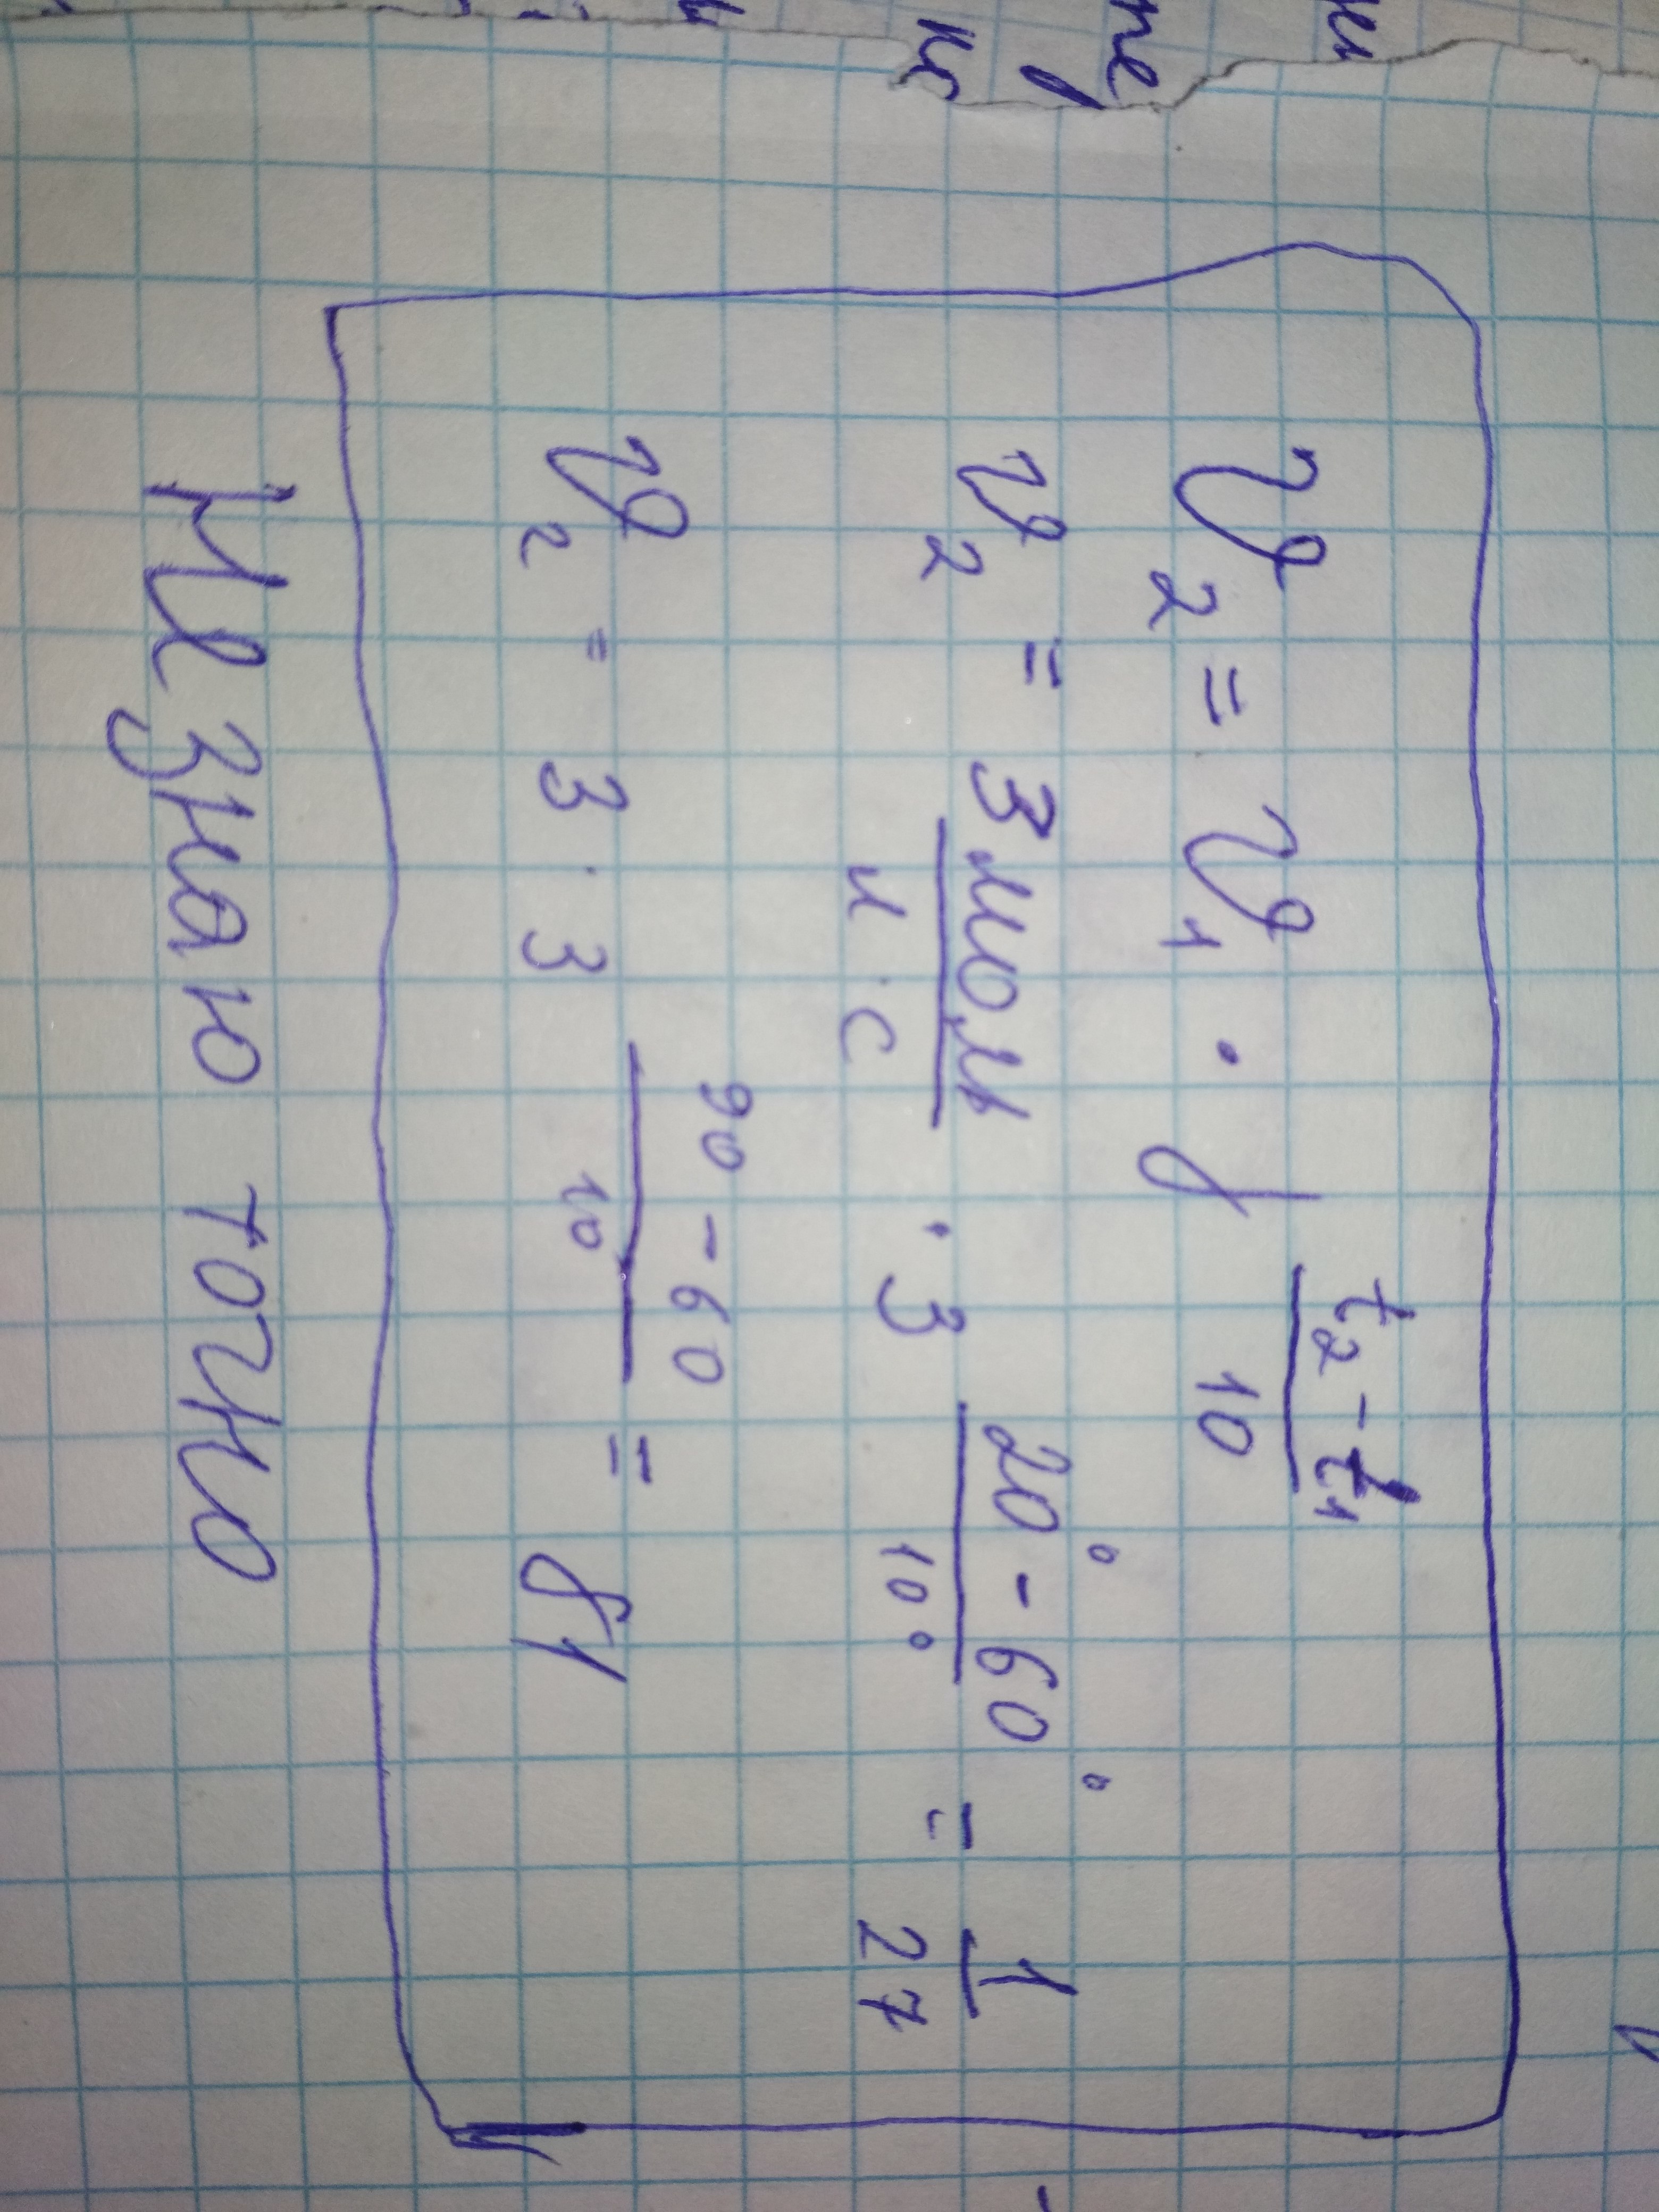 V₂ = V₁ · γ^((t₂ - t₁)/10)
V₂ = 3 моль/(л · с) · 3^((20° - 60°)/10°) = 1/27
V₂ = 3 · 3^((90 - 60)/10) = 81
Не знаю точно